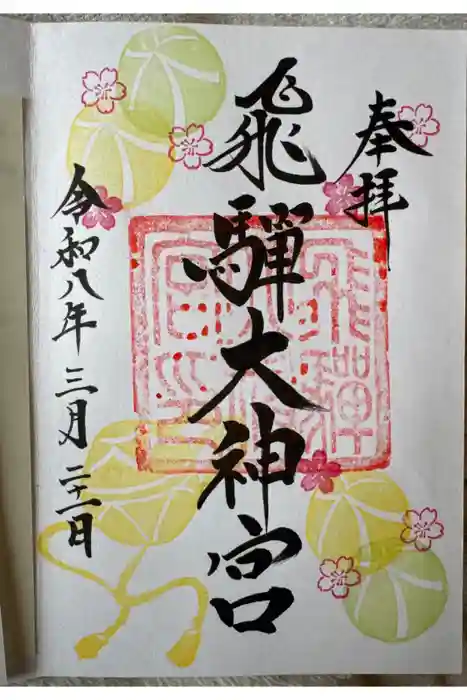 奉拝
飛騨大神宮
令和八年三月二十一日